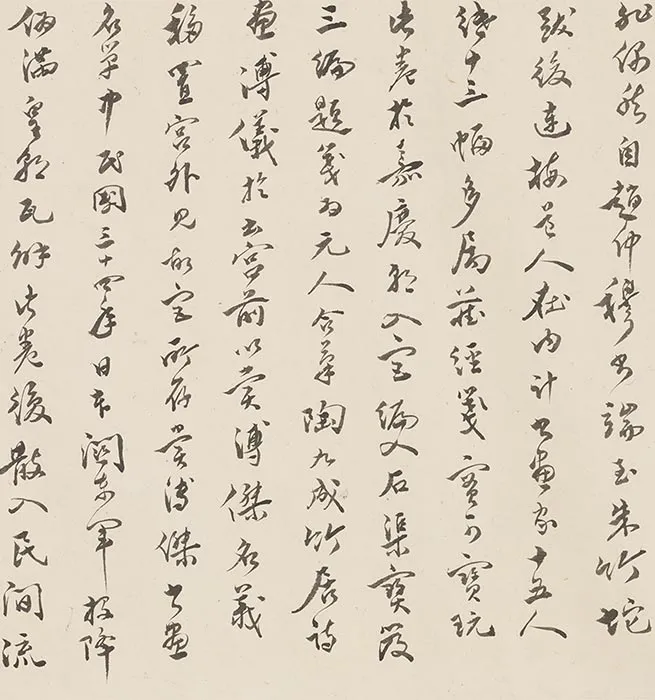 偶然自趙仲穆書端至朱竹垞
跋後連梅道人在内計書畫家十五人
十三幅多屬藏經箋實可寶玩
此卷於嘉慶朝入宮編入石渠寶笈
三編題箋為元人合筆陶九成竹居詩
畫溥儀於出宮前以賞溥傑名義
移置宮外見故宮所存賞溥傑書畫
名單中民國三十四年日本關東軍投降
偽滿皇朝瓦解此卷後散入民間流